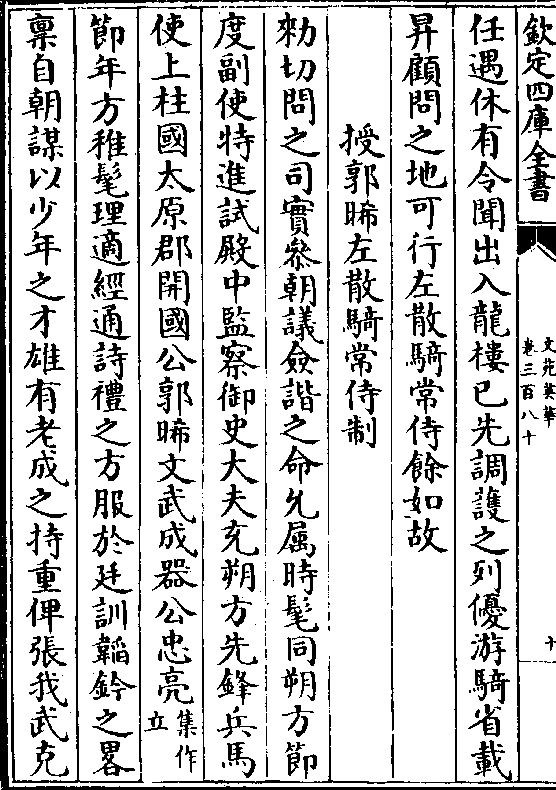 欽定四庫全書
文苑英華
卷三百八十
十
任遇休有令聞出入龍樓已先調護之列優游騎省載
昇顧問之地可行左散騎常侍餘如故
授郭晞左散騎常侍制
勑切問之司實參朝議僉諧之命允屬時髦同朔方節
度副使特進試殿中監察御史大夫充朔方先鋒兵馬
使上柱國太原郡開國公郭晞文武成器公忠亮集作立
節年方稚髦理適經通詩禮之方服於廷訓韜鈐之畧
稟自朝謀以少年之才雄有老成之持重俾張我武克